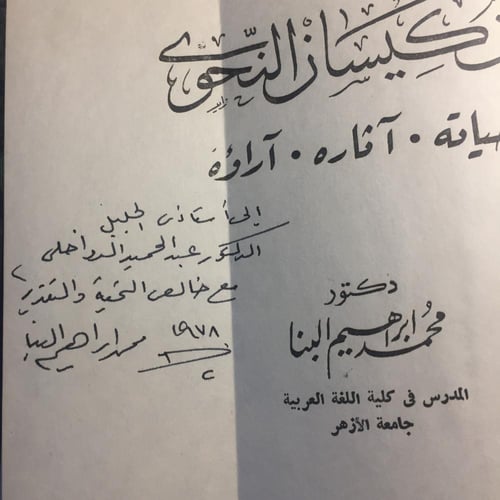 ن كيسان النحوى
حياته • آثاره • آراؤه
إلى أستاذى الجليل
الدكتور عبد الحميد الدواخلى
مع خالص التحية والتقدير
محمد إبراهيم البنا
١٩٧٨
دكتور
محمد إبراهيم البنا
المدرس فى كلية اللغة العربية
جامعة الأزهر